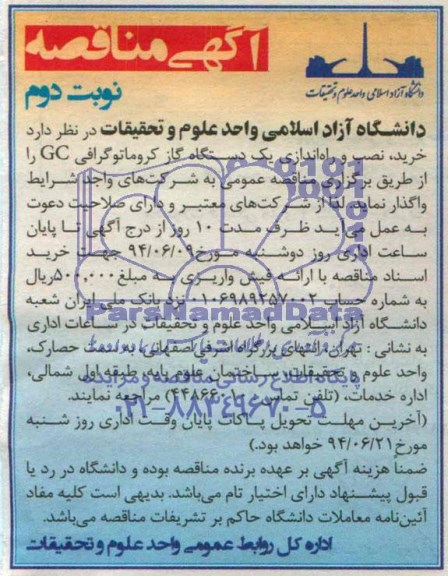 آگهی مناقصه
دانشگاه آزاد اسلامی واحد علوم و تحقیقات
نوبت دوم
دانشگاه آزاد اسلامی واحد علوم و تحقیقات در نظر دارد
خرید، نصب و راه‌اندازی یک دستگاه گاز کروماتوگرافی GC را
از طریق برگزاری مناقصه عمومی به شرکت‌های واجد شرایط
واگذار نماید. لذا از شرکت‌های معتبر و دارای صلاحیت دعوت
به عمل می‌آید ظرف مدت ۱۰ روز از درج آگهی تا پایان
ساعت اداری روز دوشنبه مورخ ۹۴/۰۶/۰۹ جهت خرید
اسناد مناقصه با ارائه فیش واریزی به مبلغ ۵۰۰,۰۰۰ ریال
به شماره حساب ۰۱۰۶۹۸۹۲۵۷۰۰۲ نزد بانک ملی ایران شعبه
دانشگاه آزاد اسلامی واحد علوم و تحقیقات در ساعات اداری
به نشانی: تهران، انتهای بزرگراه اشرفی اصفهانی، به سمت حصارک،
واحد علوم و تحقیقات، ساختمان علوم پایه، طبقه اول شمالی،
اداره خدمات، (تلفن تماس: ) مراجعه نمایند.
(آخرین مهلت تحویل پاکات پایان وقت اداری روز شنبه
مورخ ۹۴/۰۶/۲۱ خواهد بود.)
ضمناً هزینه آگهی بر عهده برنده مناقصه بوده و دانشگاه در رد یا
قبول پیشنهاد دارای اختیار تام می‌باشد. بدیهی است کلیه مفاد
آئین‌نامه معاملات دانشگاه حاکم بر تشریفات مناقصه می‌باشد.
اداره کل روابط عمومی واحد علوم و تحقیقات
ParsNamadData
پایگاه اطلاع رسانی مناقصه و مزایده
۰۲۱-۸۸۳۴۹۶۷۰-۵